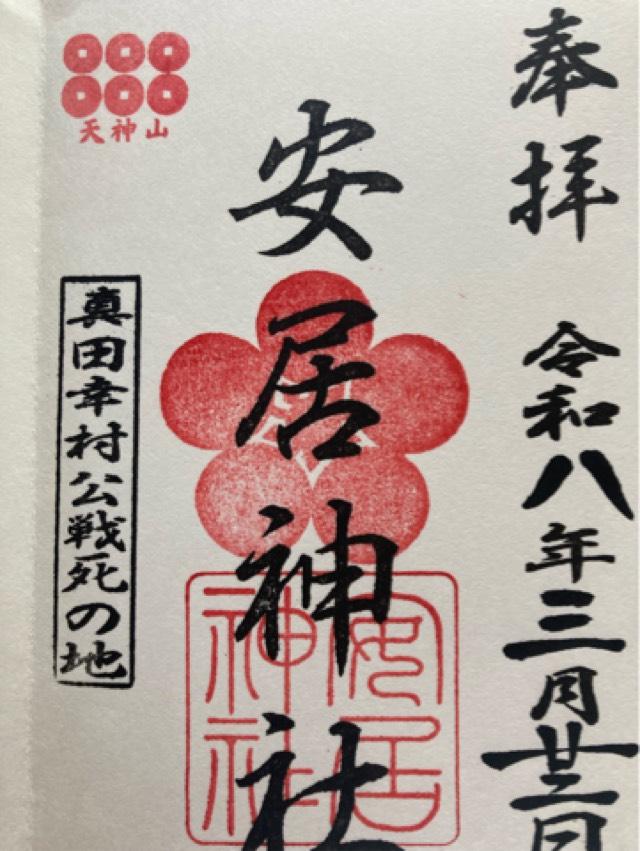 奉拝 令和八年三月廿二日
安居神社
安居
神社
天神山
真田幸村公戦死の地